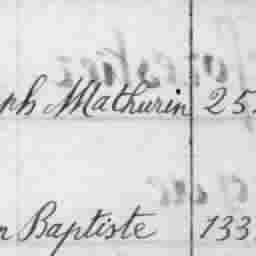 ph Mathurin 25
n Baptiste 133